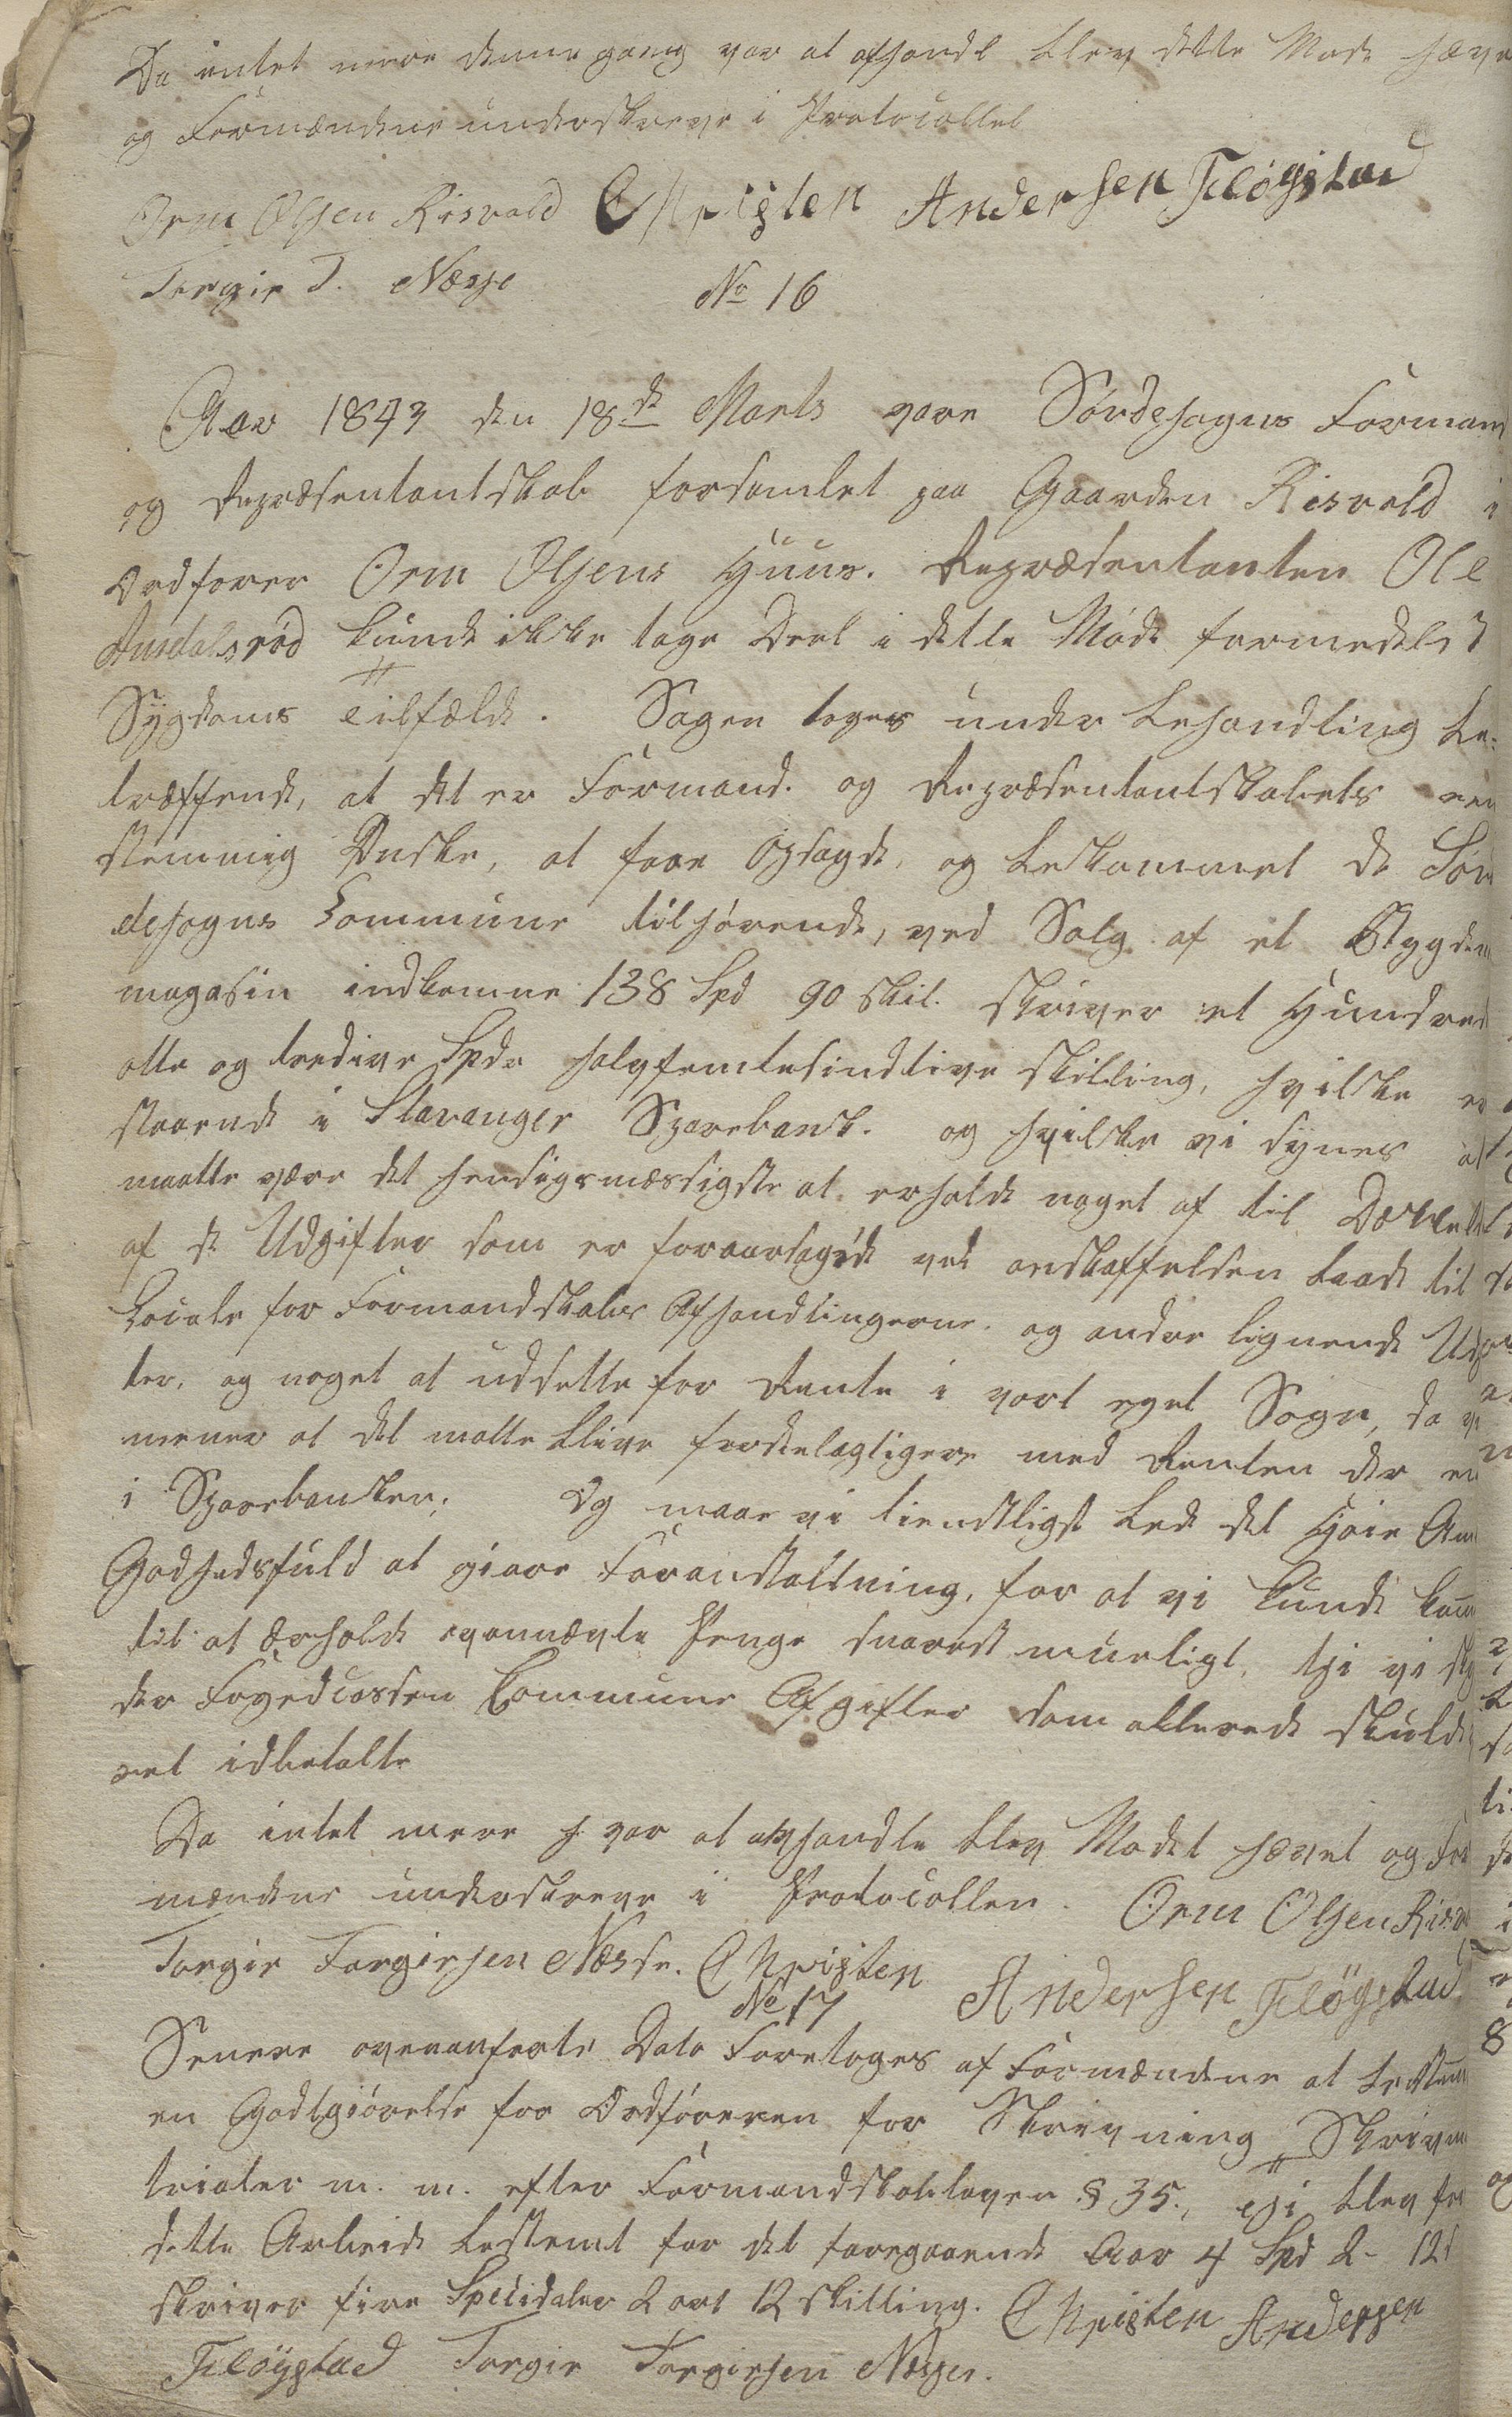 Da intet mere denne gang var at afhandl blev dette Møde hæve
og Formændene underskreve i Protocollet
Orm Olsen Risvold Christen Andersen Fløystad
Torgir T. Næsse
No 16
Aar 1843 den 18de Marts vare Sørdesognes Formand
og Repræsentantskab forsamlet paa Gaarden Risvold i
Ordfører Orm Olsens Huus. Repræsentanten Ole
kunde ikke tage Deel i dette Møde formedelst
Sygdoms Tilfælde. Sagen toges under behandling be-
træffende, at det er Formand- og Repræsentantskabets een
stemmig Ønske, at faae Opsagde, og bekommet de Sør
desogns Commune tilhørende, ved Salg af et Bygde
magasin indkomne 138 Spd 90 skil. skriver et Hundred
otte og tredive Spdr halvfemtesindtive skilling, hvilke er
staaende i Stavanger Sparebank. og hvilke vi synes at
maatte være det hensigsmæssigste at erholde noget af til Dække
af de Udgifter som er foraarsagede ved anskaffelsen baade til
Locale for Formandskabes Afhandlingerne. og andre lignende Udg
ter, og noget at udsette for Rente i vort eget Sogn, da vi
mener at det matte blive fordelagtigere med Renten der en
i Sparebanken. Og maae vi tienstligst bede det Høie Am
Godhedsfuld at giøre Foranstaltning, for at vi kunde kom
til at Erholde ovennævte Penge snarest mueligt, thi vi sky
der Fogedcassen Commune Afgifter som allerede skulde
ret idbetalte
Da intet mere h var at afhandle blev Mødet hævet og For
mændene underskreve i Protocollen. Orm Olsen Risvo
Torgir Torgirsen Næsse. Christen Andersen Fløgstad
No 17
Senere ovenanførte Dato Foretoges af Formændene at bestem
en Godtgiørelse for Ordføreren for Skrivning Skrivm
trialer m. m. efter Formandskabsloven § 35., blev for
dette Arbeide bestemt for det foregaaende Aar 4 Spd 2- 12s
skriver fire Specidaler 2 ort 12 skilling. Christen Andersen
Fløystad Torgir Torgirsen Næsse.